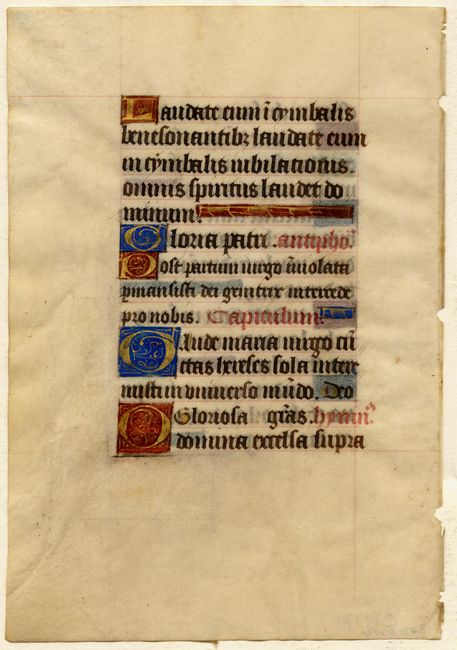 Laudate eum i cymbalis
benesonantibz laudate eum
in cymbalis iubilationis.
omnis spiritus laudet do
minum.
Gloria patri. antipho.
Post partum uirgo iuiolata
pmansisti dei genitrix intercede
pro nobis. Capitulum.
Gaude maria uirgo cu
ctas hereses sola intere
misti in vniuerso mudo. Deo
O Gloriosa gras. hymn.
domina excelsa supra